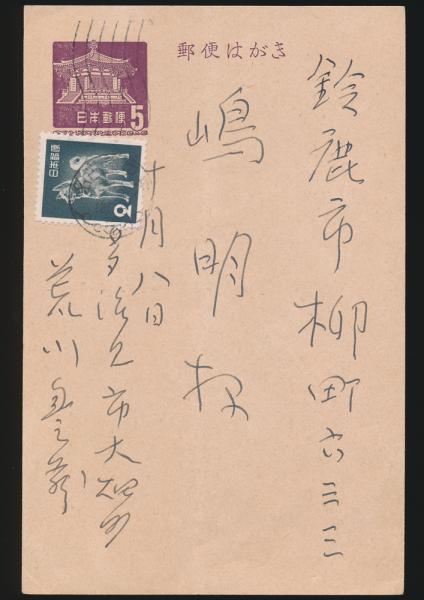 郵便はがき
日本郵便
5
日本郵便
2
鈴鹿市柳町六三三
嶋明様
十月八日
多治見市大畑町
荒川